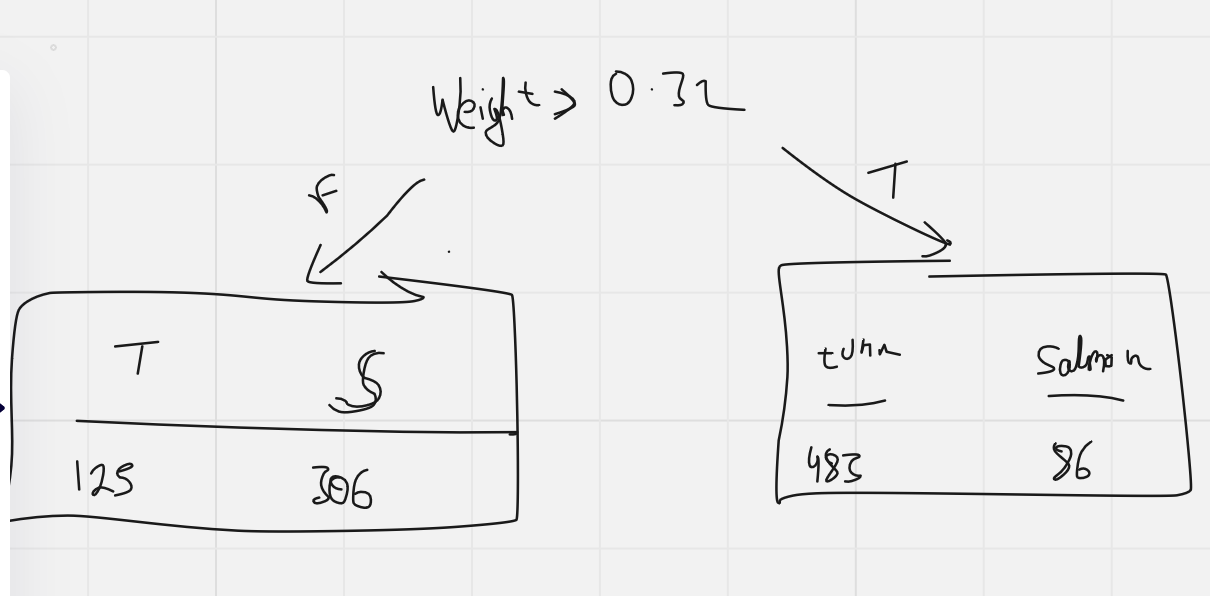 Weight > 0.32
F
T
T S
125 306
tuna Salmon
483 86